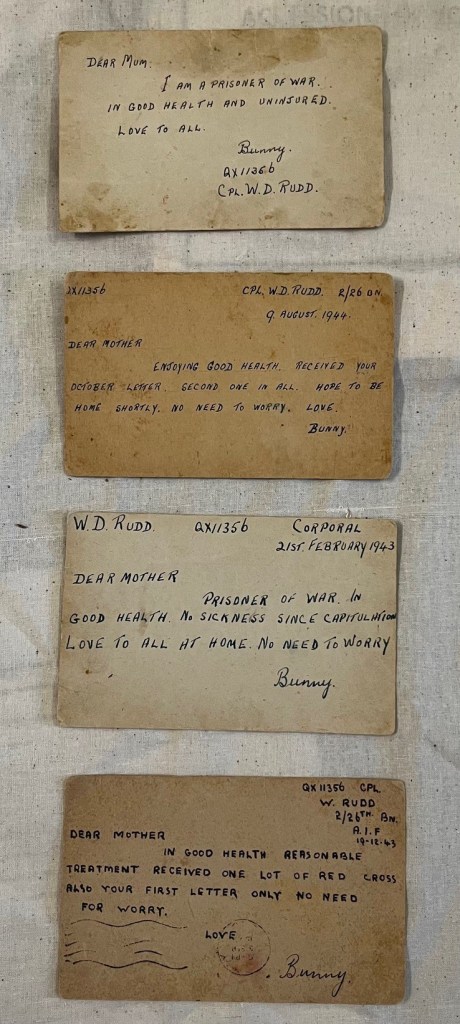 DEAR MUM.
I AM A PRISONER OF WAR.
IN GOOD HEALTH AND UNINJURED.
LOVE TO ALL.
Bunny.
QX11356
CPL. W. D. RUDD.
QX11356 CPL. W. D. RUDD. 2/26 BN.
9. AUGUST. 1944.
DEAR MOTHER
ENJOYING GOOD HEALTH. RECEIVED YOUR
OCTOBER LETTER. SECOND ONE IN ALL. HOPE TO BE
HOME SHORTLY. NO NEED TO WORRY. LOVE.
BUNNY.
W. D. RUDD. QX11356 CORPORAL
21ST. FEBRUARY 1943
DEAR MOTHER
PRISONER OF WAR. IN
GOOD HEALTH. NO SICKNESS SINCE CAPITULATION
LOVE TO ALL AT HOME. NO NEED TO WORRY
Bunny.
QX11356 CPL
W. RUDD
2/26TH. BN.
A. I. F
19-12-43
DEAR MOTHER
IN GOOD HEALTH REASONABLE
TREATMENT RECEIVED ONE LOT OF RED CROSS
ALSO YOUR FIRST LETTER ONLY NO NEED
FOR WORRY.
LOVE.
Bunny.